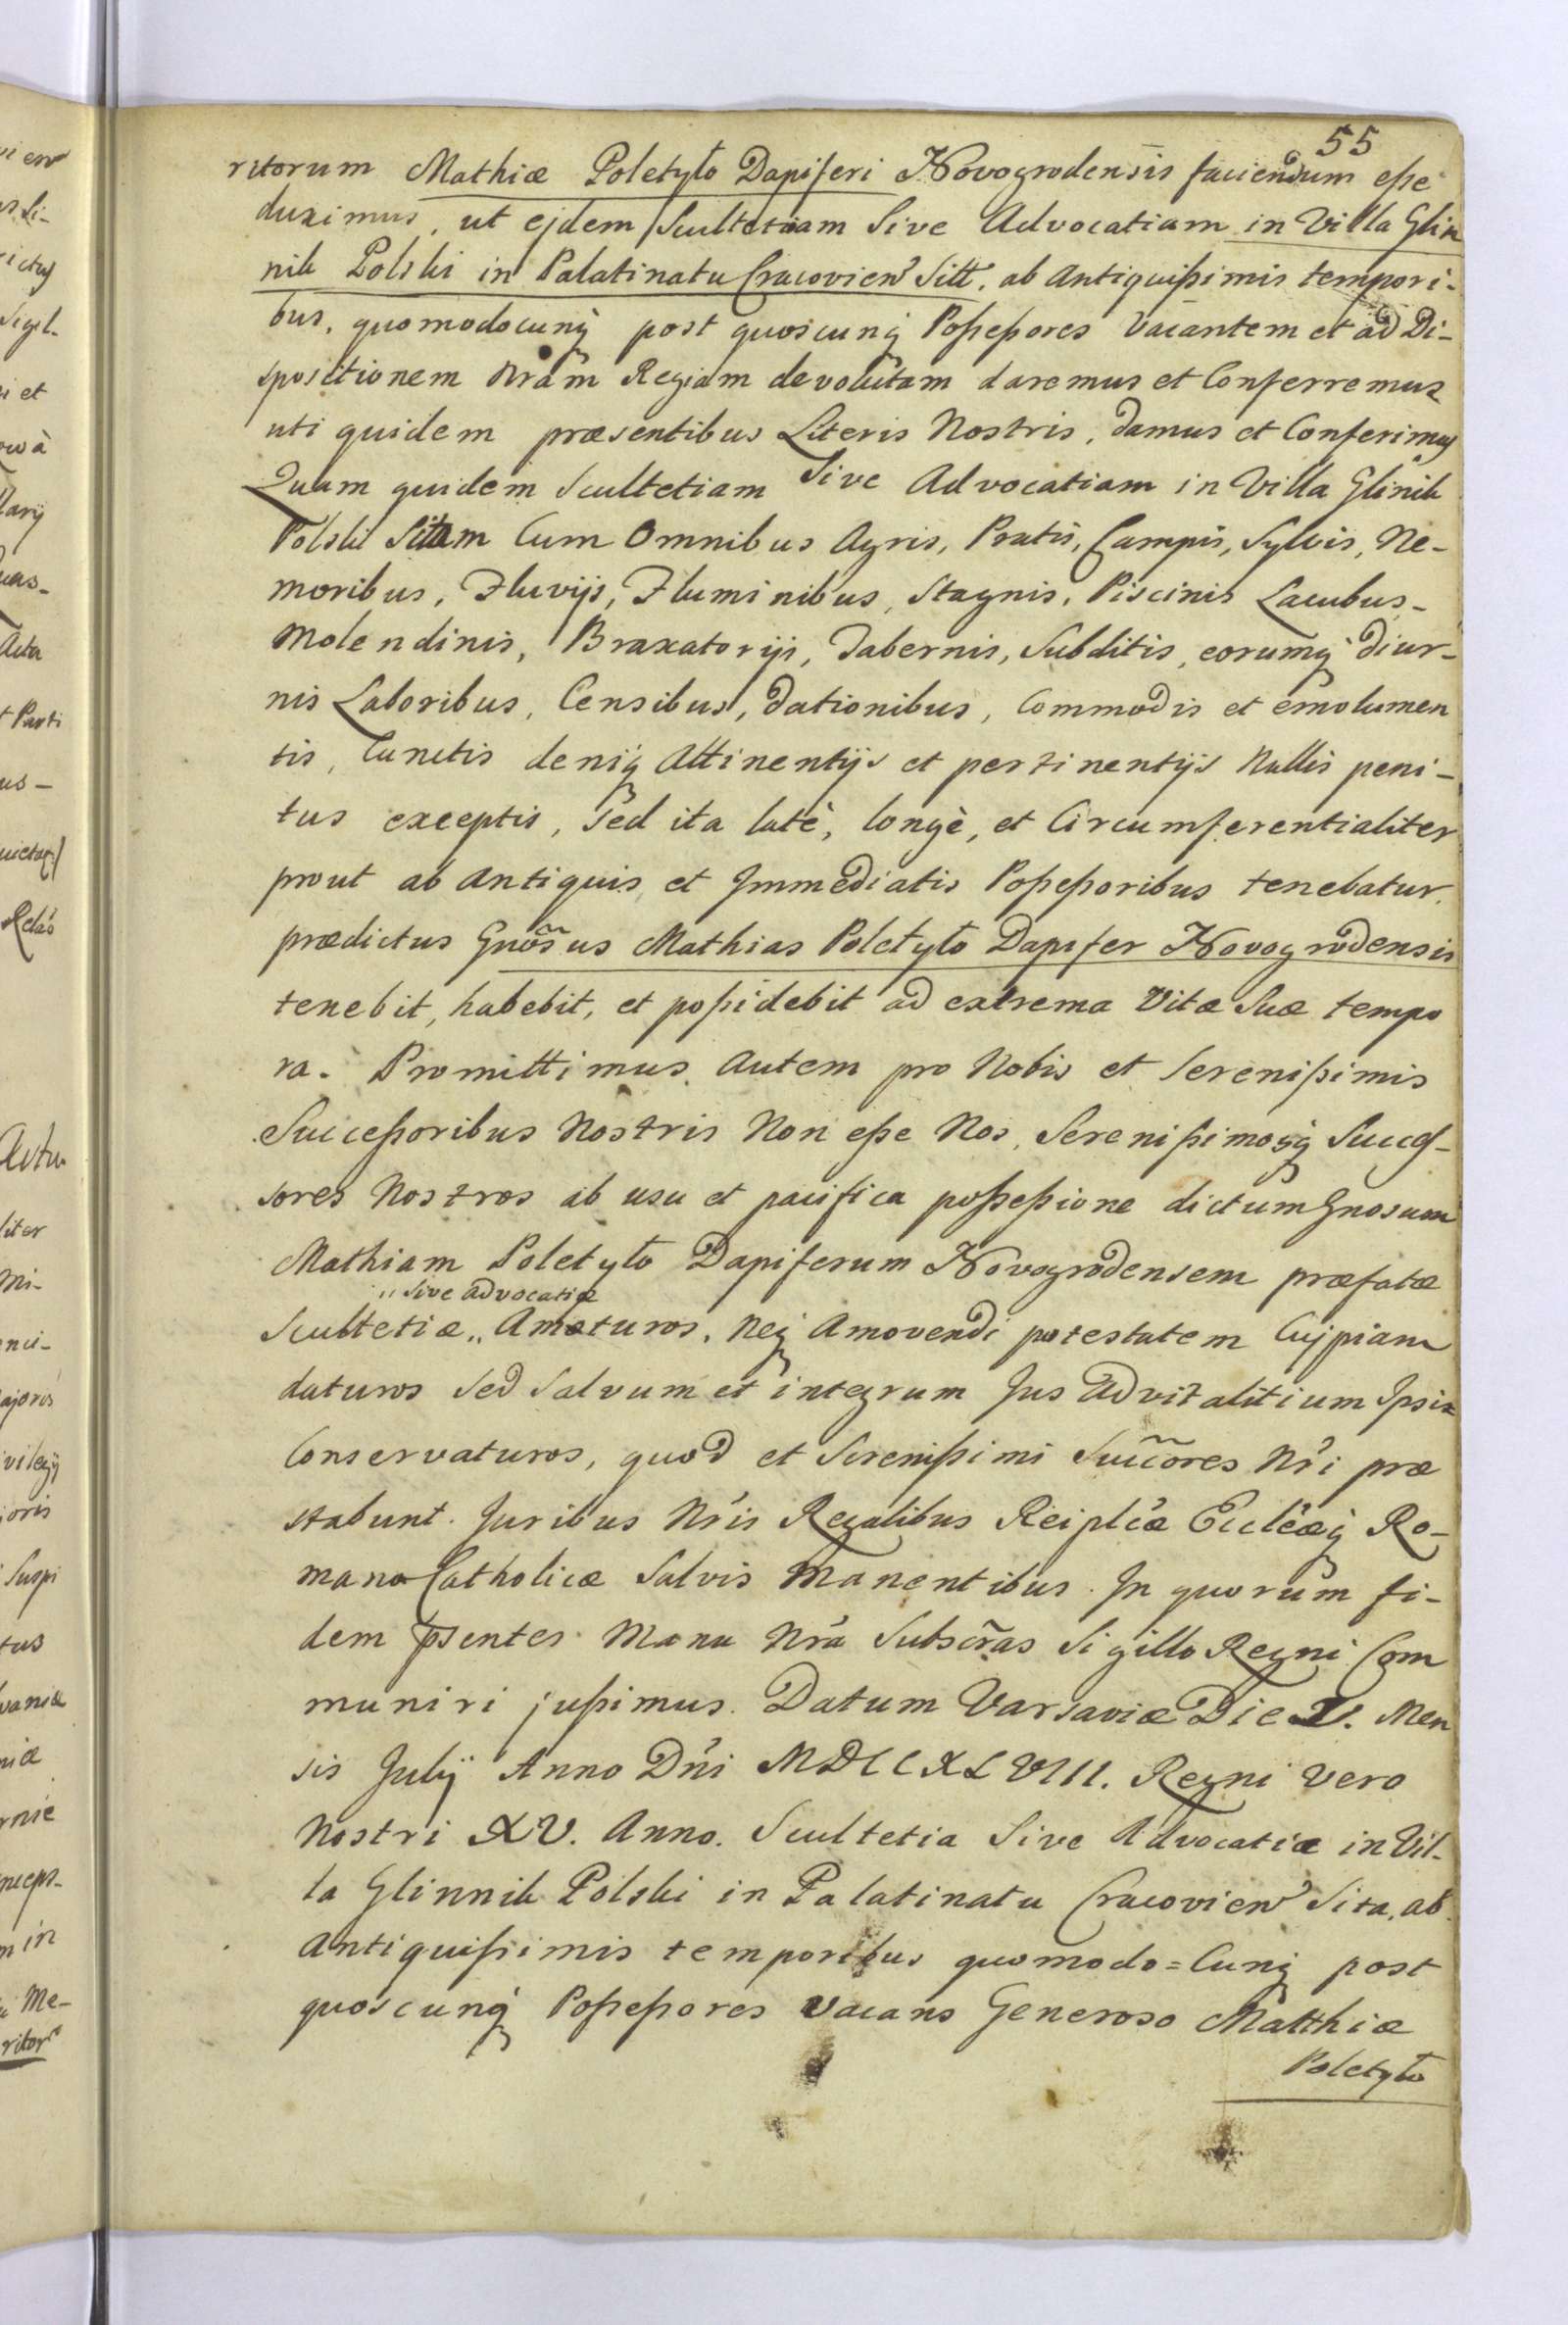 55
ritorum Mathiæ Poletyło Dapiferi Novogrodensis faciendum eße
duximus, ut ejdem Scultetiam Sive Advocatiam in Villa Glin
nik Polski in Palatinatu Cracovien Sitt. ab antiquißimis tempori-
bus, quomodocunq́ post quoscunq́ Poßeßores Vacantem et ad Di-
spositionem Nrãm Regiam devolutam daremus et Conferremus
uti quidem præsentibus Literis Nostris, damus et Conferimus
Quam quidem Scultetiam Sive Advocatiam in Villa Glinik
Polski Sitam Cum Omnibus Agris, Pratis, Campis, Sylvis, Ne-
moribus, Fluvijs, Fluminibus, Stagnis, Piscinis Lacubus-
Molendinis, Braxatorijs, Tabernis, Subditis, eorumq́ diur-
nis Laboribus, Censibus, dationibus, Commodis et emolumen
tis, Cunctis deniq́ Attinentijs et pertinentijs Nullis peni-
tus exceptis, sed ita latè, longè, et Circumferentialiter
prout ab antiquis et Immediatis Poßeßoribus tenebatur.
prædictus Gnõsus Mathias Poletyło Dapifer Novogrodensis
tenebit, habebit, et poßidebit ad extrema Vitæ Suæ tempo
ra. Promittimus autem pro Nobis et Serenißimis
Succeßoribus Nostris Non eße Nos, Serenißimosq́ Succes-
sores Nostros ab usu et pacifica poßeßione dictum Gnosum
Mathiam Poletyło Dapiferum Novogrodensem præfatæ
„ Sive advocatiæ
Scultetiæ „ Amoturos. Neq́ Amovendi potestatem Cujpiam
daturos Sed Salvum et integrum Jus Advitalitium Ipsi
Conservaturos, quod et Serenißimi Succõres Nr̃i præ
stabunt. Juribus Nr̃is Regalibus Reiplcæ Ecclẽæq́ Ro-
mano Catholicæ Salvis Manentibus. In quorum fi-
dem psentes Manu Nrã Subscr̃as Sigillo Regni Com
muniri jußimus. Datum Varsaviæ Die V. Men
sis Julij Anno Dñi MDCCXLVIII. Regni Vero
Nostri XV. Anno. Scultetia Sive Advocatiæ in Vil-
la Glinnik Polski in Palatinatu Cracovien Sita, ab
Antiquißimis temporibus quomodo=Cunq́ post
quoscunq́ Poßeßores Vacans Generoso Matthiæ
Poletyło